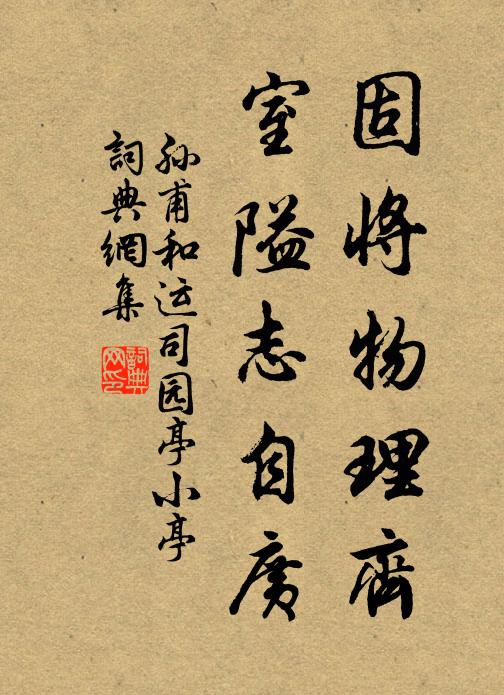 固将物理齊
室隘志自廣
孙甫和运司园亭小亭
詞典網集
詞典网印